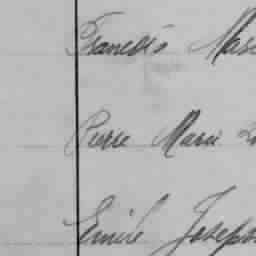 Francois Mar
Pierre Marie
Emile Joseph